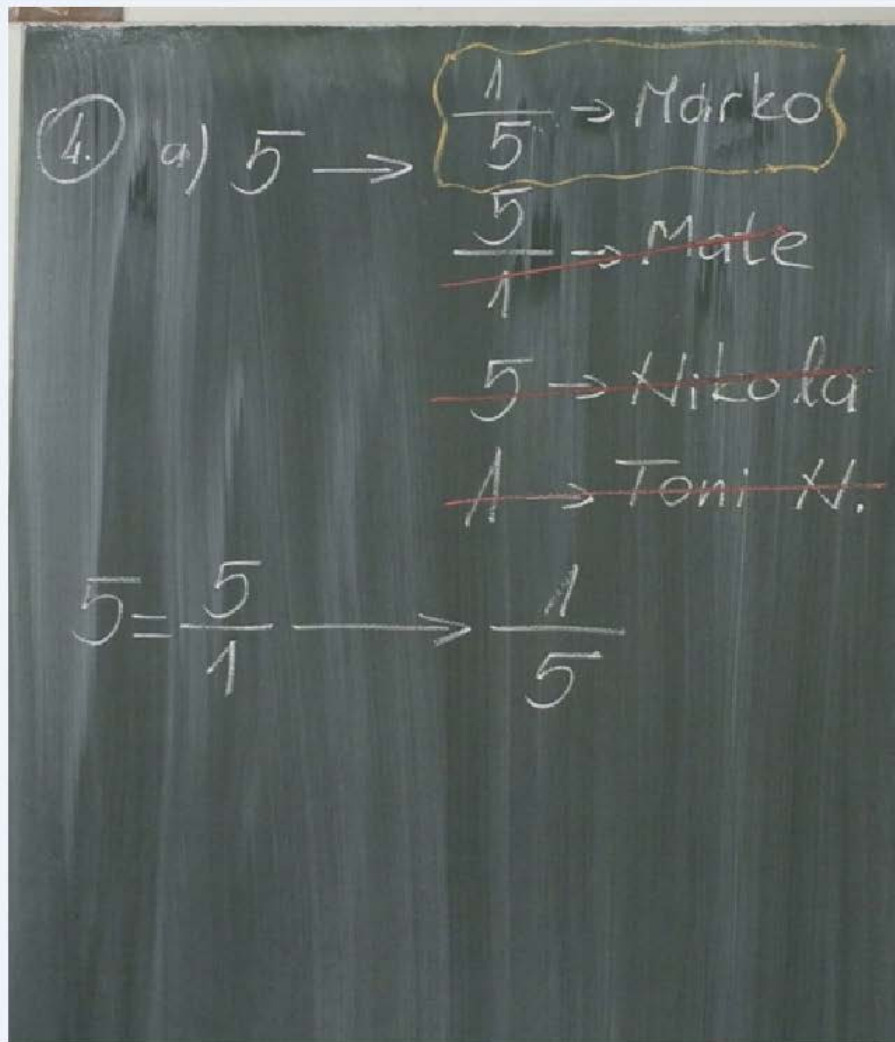 4. a) 5 → 1/5 → Marko
5/1 → Mate
5 → Nikola
1 → Toni N.
5 = 5/1 → 1/5